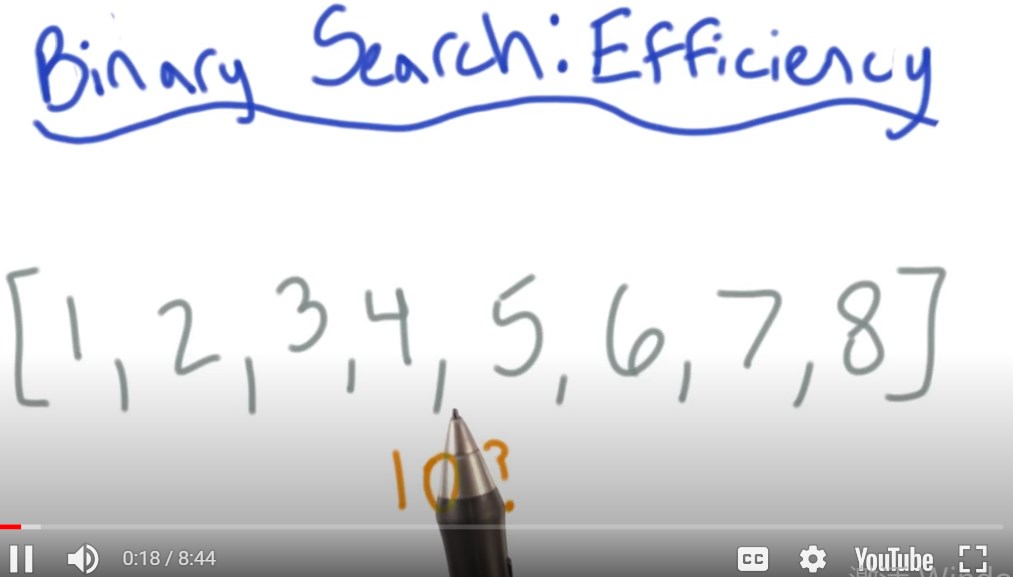 Binary Search: Efficiency
[1, 2, 3, 4, 5, 6, 7, 8]
10?
0:18 / 8:44
CC
YouTube